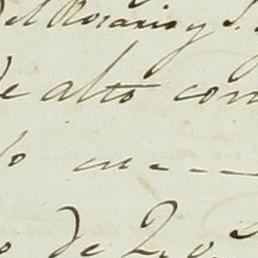 del Rosario y S.
de alto con
lo en ----
o de 2 9